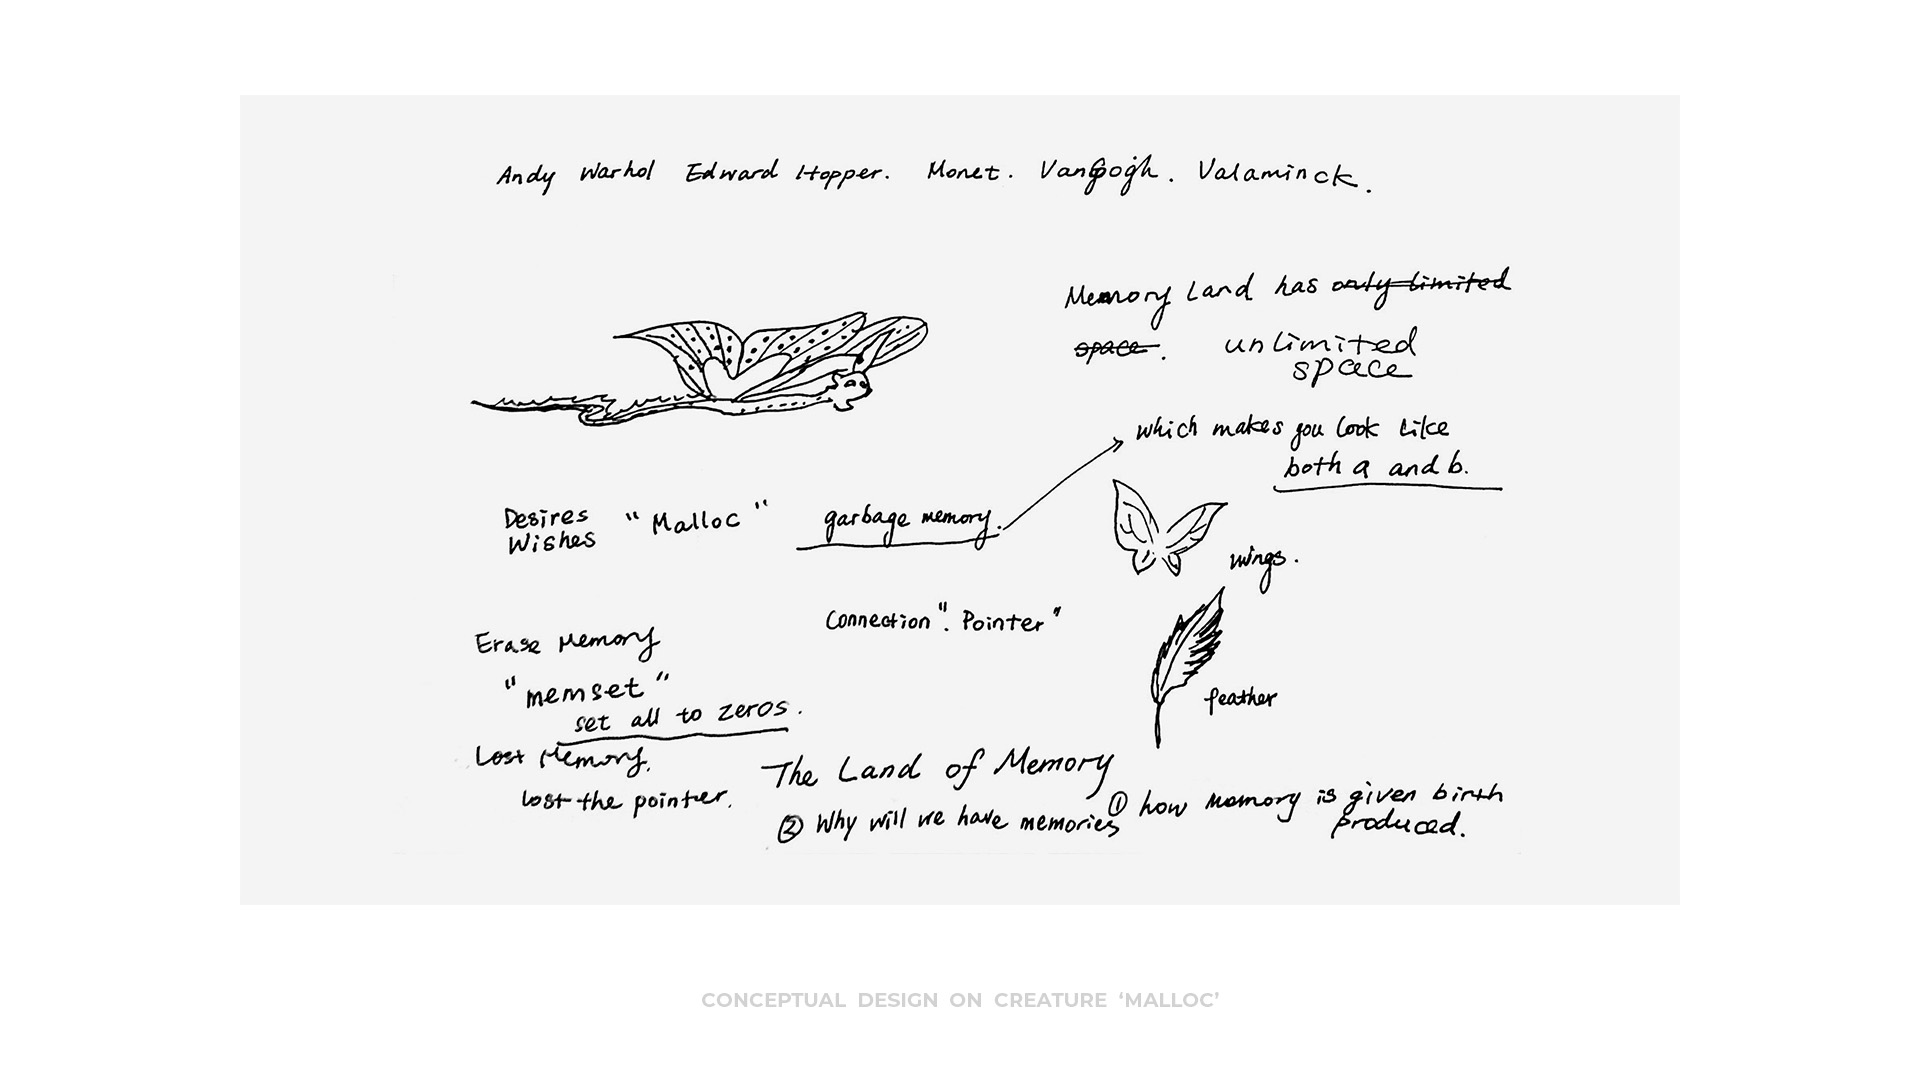 Andy Warhol Edward Hopper. Monet. VanGogh. Valaminck.
Memory Land has only limited
space. unlimited
space
which makes you look like
both a and b.
Desires
Wishes
"Malloc"
garbage memory.
wings.
Connection ". Pointer"
Erase Memory
"memset"
set all to zeros.
feather
Lost Memory.
lost the pointer.
The Land of Memory
① how memory is given birth
produced.
② Why will we have memories
CONCEPTUAL DESIGN ON CREATURE ‘MALLOC’